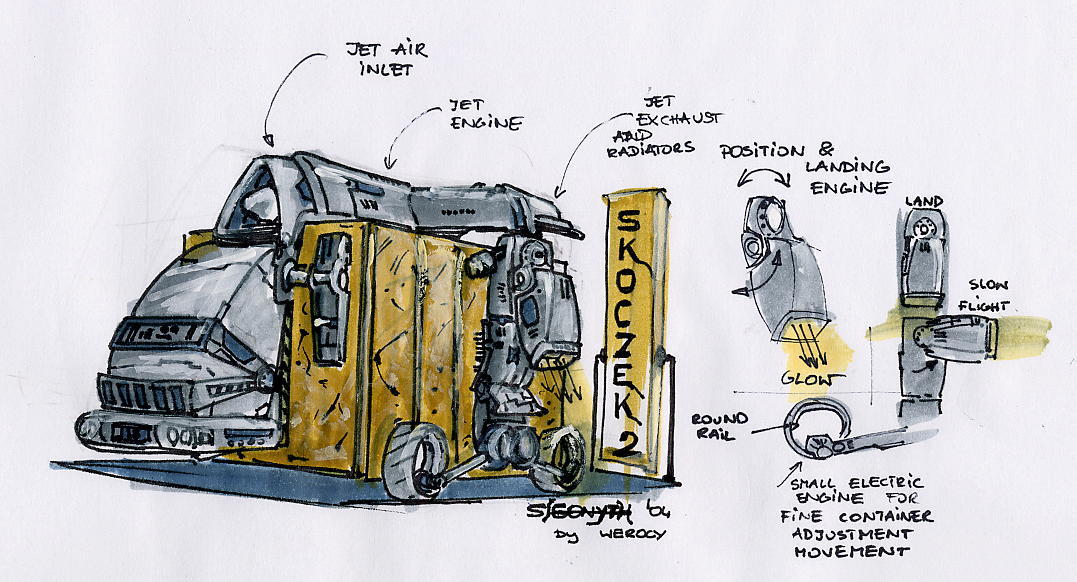 JET AIR
INLET
JET
ENGINE
JET
EXHAUST
AND
RADIATORS
POSITION &
LANDING
ENGINE
LAND
SLOW
FLIGHT
GLOW
SKOCZEK 2
ROUND
RAIL
SMALL ELECTRIC
ENGINE FOR
FINE CONTAINER
ADJUSTMENT
MOVEMENT
'04
by WEROCY